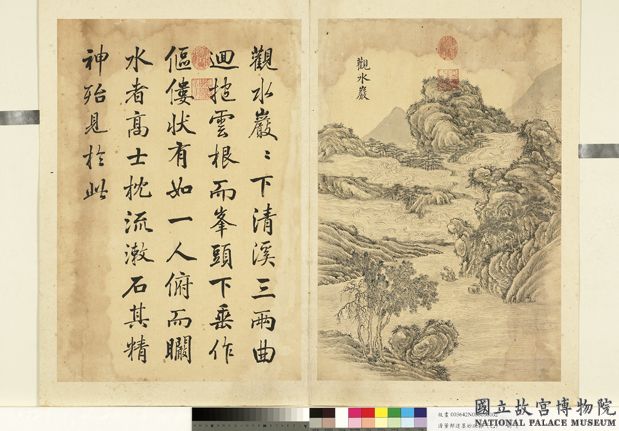 觀水巖
觀水巖〻下清溪三兩曲
迴抱雲根而峯頭下垂作
傴僂状有如一人俯而瞷
水者高士枕流漱石其精
神殆見於此
國立故宮博物院
NATIONAL PALACE MUSEUM